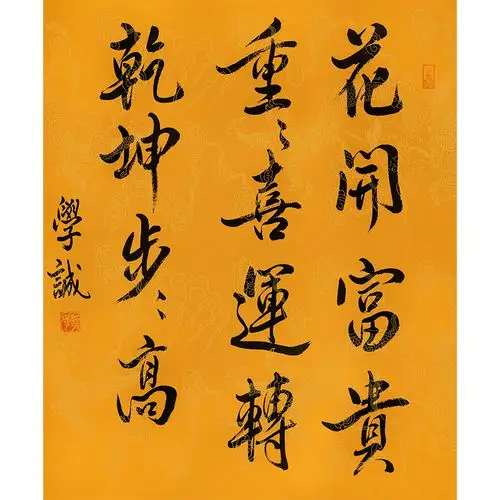 花開富貴
重〻喜運轉
乾坤步〻高
學誠